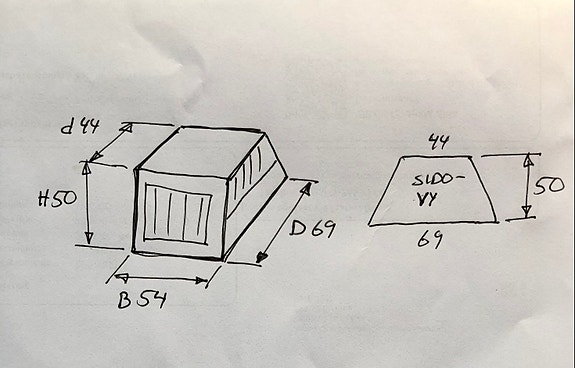 d 44
H50
D 69
B 54
44
SIDO-
VY
50
69